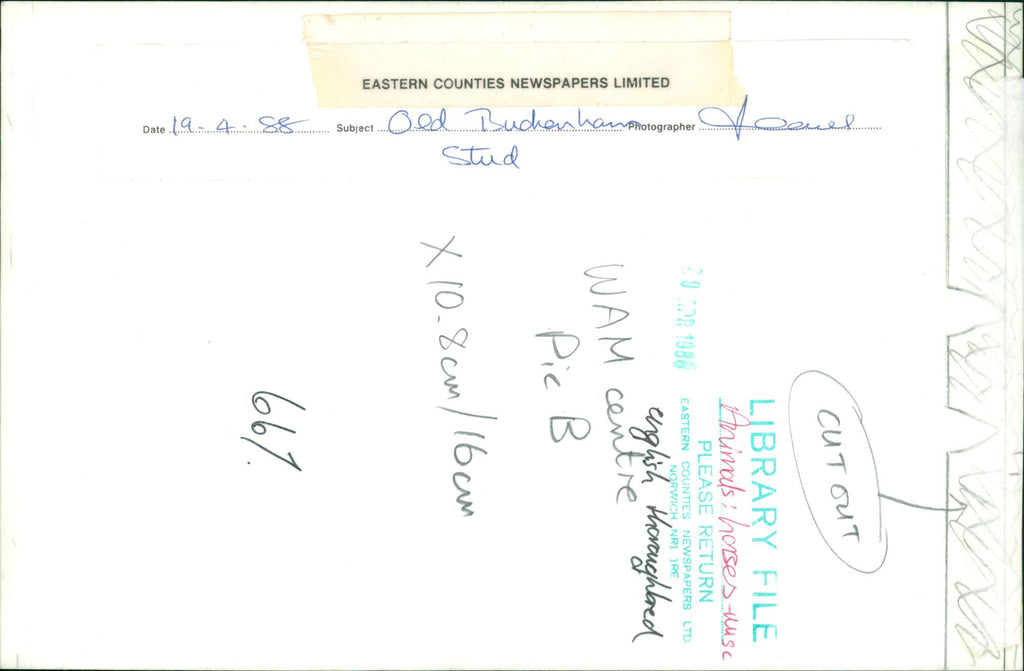 EASTERN COUNTIES NEWSPAPERS LIMITED
Date 19-4-88 Subject Old Buckenham Photographer
Stud
CUT OUT
LIBRARY FILE
Animals: horses-misc
PLEASE RETURN
EASTERN COUNTIES NEWSPAPERS LTD.
NORWICH NR1 1RE
20 APR 1988
english thoroughbred
WAM centre
Pic B
X 10.8cm/16cm